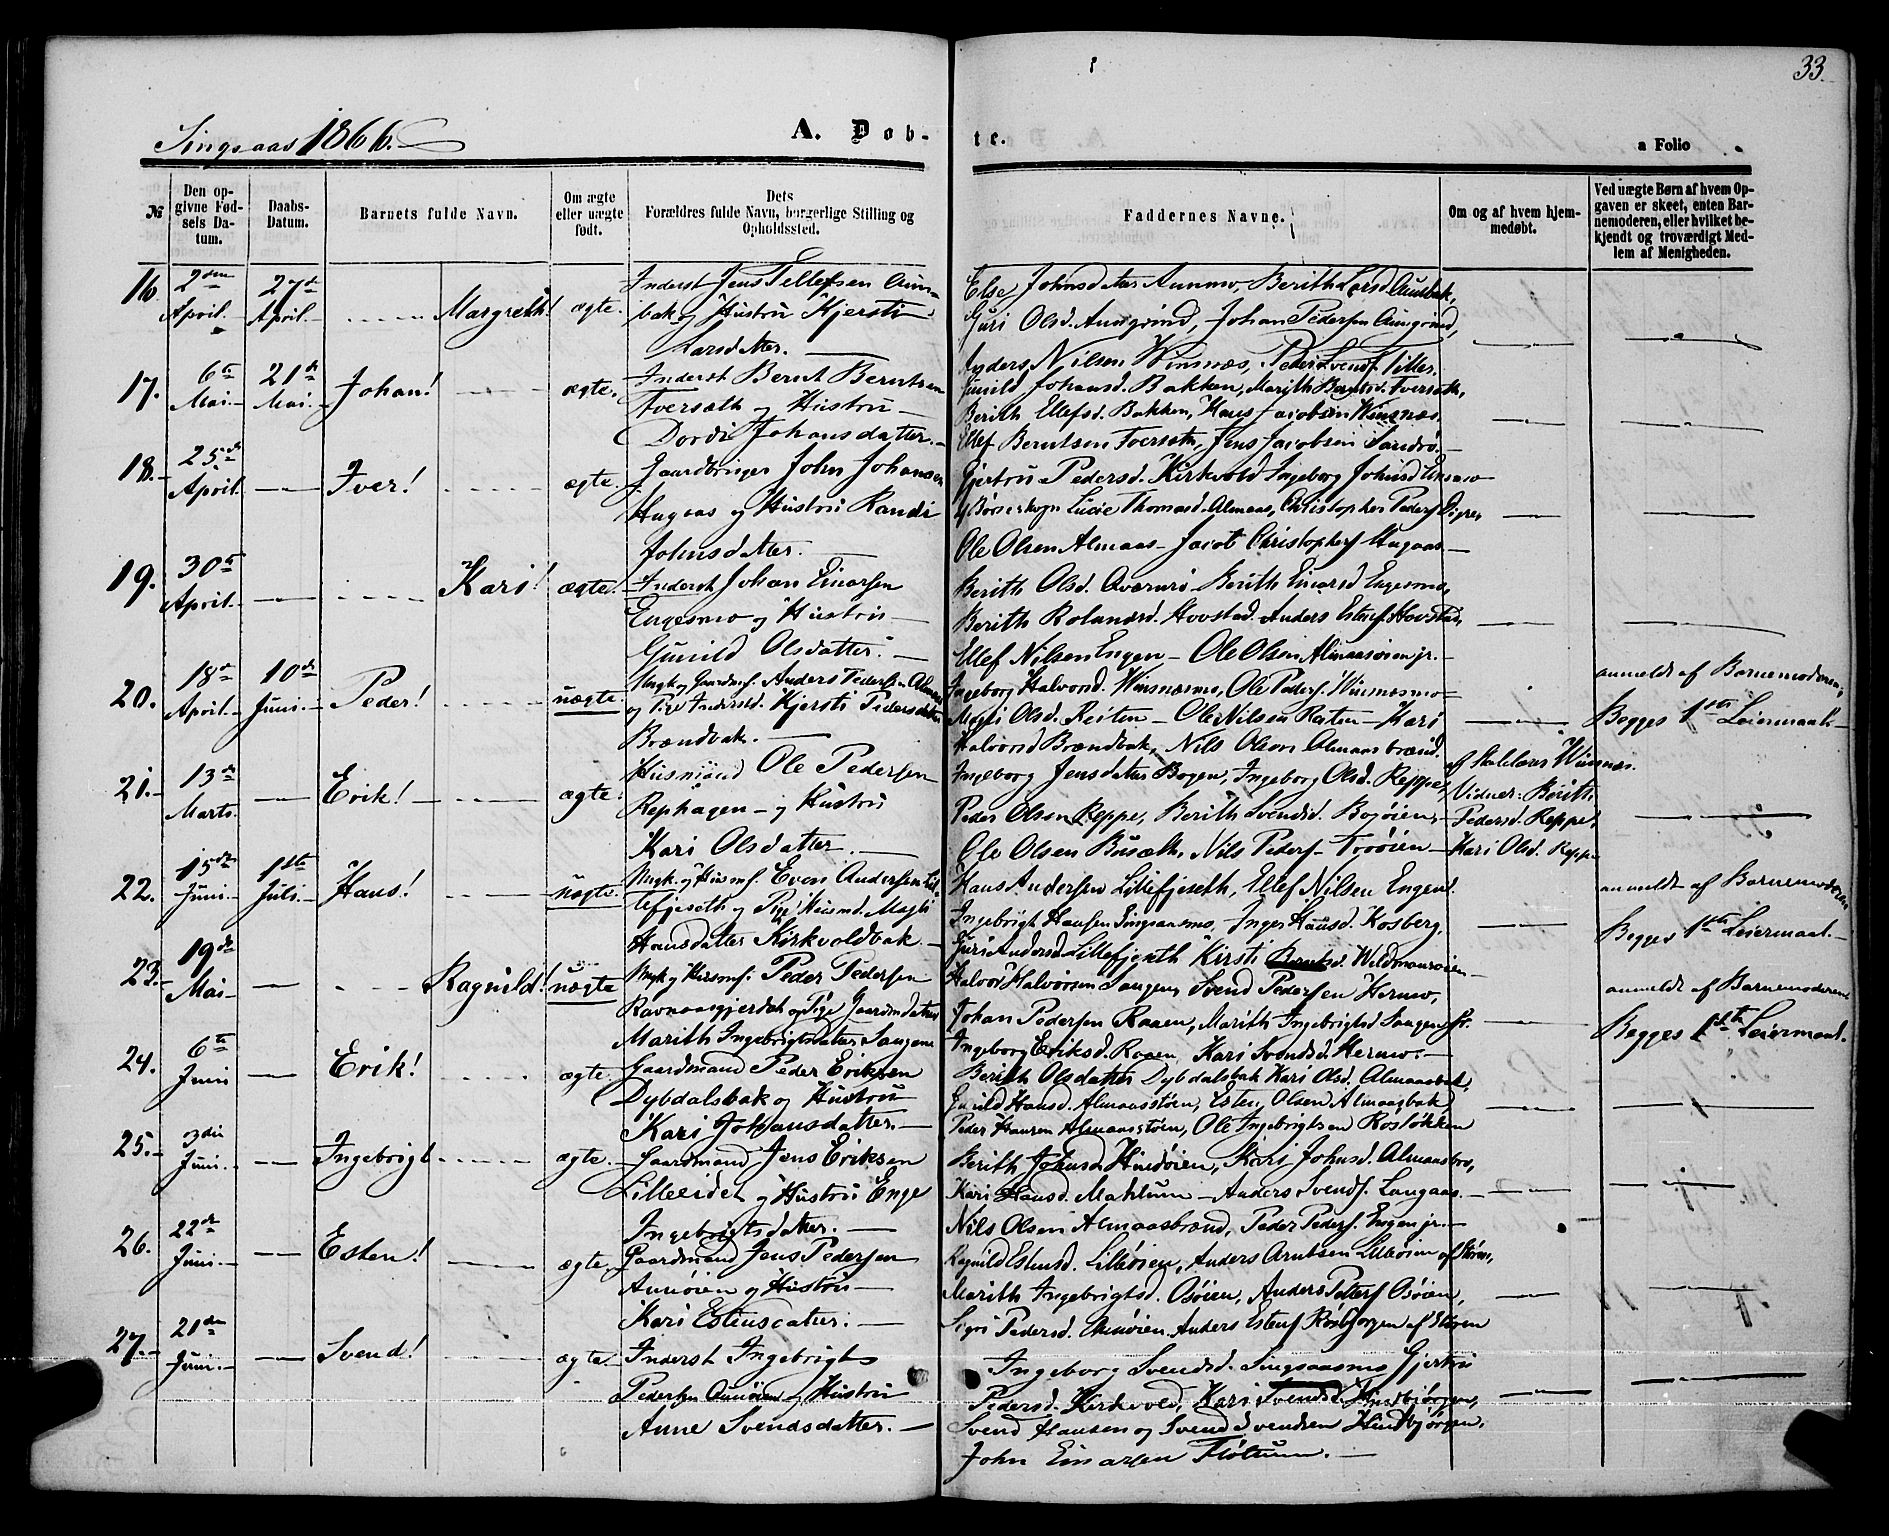 33.
Singsaas 1866.
A. Døb-
te.
a Folio
№
Den op-
givne Fød-
sels Da-
tum.
Daabs-
Datum.
Barnets fulde Navn.
Om ægte
eller uægte
født.
Dets
Forældres fulde Navn, borgerlige Stilling og
Opholdssted.
Faddernes Navne.
Om og af hvem hjem-
medøbt.
Ved uægte Børn af hvem Op-
gaven er skeet, enten Bar-
nemoderen, eller hvilket be-
kjendt og troværdigt Med-
lem af Menigheden.
16. 2den April. 27de April. Margreth! ægte.
Inderst Jens Tellefsen Aun-
bak og Hustru Kjersti
Larsdatter.
Else Johnsdatter Aunmo, Berith Larsd. Aunbak,
Guri Olsd. Aungrind, Johan Pedersen Aungrind,
Anders Nilsen Winsnæs, Peder Svends. Tiller.
17. 6te Mai. 21de Mai. Johan! ægte.
Inderst Bernt Berntsen
Tversæth og Hustru
Dordi Johansdatter.
Gunild Johansd. Bakken, Marith Berntsd. Tversæth,
Berith Ellefsd. Bakken, Hans Jacobsen Winsnæs
Ellef Berntsen Tversæth, Jens Jacobsen Sandrø.
18. 25de April. Iver! ægte.
Gaardbruger John Johansen
Haugaas og Hustru Randi
Johnsdatter.
Gjertru Pedersd. Kirkvold Ingeborg Johnsd.
af Børseskogn Lucie Thomasd. Almaas, Christopher Peders. Digre,
Ole Olsen Almaas Jacob Christophers. Haugaas
19. 30te April. Kari! ægte.
Inderst Johan Einarsen
Engesmo og Hustru
Gunild Olsdatter.
Berith Olsd. Berith Einarsd. Engesmo,
Berith Rolandsd. Hovstad, Anders Estens. Hovstad,
Ellef Nilsen Engen Ole Olsen Almaasøien jr.
20. 18de April. 10de Juni. Peder! uægte.
Ungk. og Gaardms. Anders Pedersen
og Pige Inderstd. Kjersti Pedersdatter
Brændbak.
Ingeborg Halvorsd. Winsnæsmo, Ole Peders. Winsnæsmo
Marit Olsd. Reiten Ole Nilsen Reiten Kari
Halvorsd. Brændbak, Nils Olsen Almaasbrænd.
anmeldt af Barnemoderen,
Begges 1ste Leiermaal.
21. 13de Marts. Erik! ægte.
Husmand Ole Pedersen
Rephagen og Hustru
Kari Olsdatter.
Ingeborg Jensdatter Bogen, Ingeborg Olsd. Reppe,
Peder Olsen Reppe, Berith Svendsd. Bogøien,
Ole Olsen Busæth, Nils Peders. Trøøien
af Skolelærer Winsnæs.
Vidner: Berith
Pedersd. Reppe,
Kari Olsd. Reppe
22. 15de Juni. 1ste Juli. Hans! uægte.
Ungk. og Husms. Even Andersen Lil-
lefjeseth og Pige Husmd. Marit
Hansdatter Kirkvoldbak
Hans Andersen Lillefjeseth, Ellef Nilsen Engen.
Ingebrigt Hansen Singsaasmo, Inger Hansd. Kosberg,
Guri Andersd. Lillefjeseth Kirsti Berntsd. Wildmansøien
anmeldt af Barnemoderen
Begges 1ste Leiermaal.
23. 19de Mai Ragnild! uægte
Ungk. og Husms. Peder Pedersen
Ravnaasgjerdet og Pige Gaardmdatter
Marith Ingebrigtsdatter Saugene
Halvor Halvorsen Saugen, Svend Pedersen Hermo,
Johan Pedersen Raaen, Marith Ingebrigtsd. Saugen,
Ingeborg Eriksd. Raaen, Kari Svendsd. Hermo.
anmeldt af Barnemoderen
Begges 1ste Leiermaal.
24. 6te Juni Erik! ægte.
Gaardmand Peder Eriksen
Dybdalsbak og Hustru
Kari Johansdatter.
Berith Olsdatter Dybdalsbak Kari Olsd. Almaasbak,
Gunild Hansd. Almaasstøen, Esten Olsen Almaasbak,
Peder Hansen Almaasstøen, Ole Ingebrigtsen Rostøkken
25. 3die Juni. Ingebrigt ægte.
Gaardmand Jens Eriksen
Lilleeidet og Hustru Enge
Ingebrigtsdatter.
Berith Johnsd. Hindøien, Kari Johnsd. Almaasbro,
Kari Hansd. Mahlum Anders Svends. Langaas
Nils Olsen Almaasbrænd, Peder Peders. Engen jr.
26. 22de Juni. Esten! ægte.
Gaardmand Jens Pedersen
Aunøien og Hustru
Kari Estensdatter.
Ragnild Estensd. Lilleøien, Anders Arntsen Lilleøien af Støren,
Marith Ingebrigtsd. Osøien, Anders Peters. Osøien,
Sigri Pedersd. Aunøien, Anders Estens.
27. 21de Juni. Svend! ægte
Inderst Ingebrigt
Pedersen Aunøien og Hustru
Anne Svendsdatter.
Ingeborg Svendsd. Singsaasmo Gjertru
Pedersd. Kirkvold, Kari Svendsd. Hindbjørgen,
Svend Hansen og Svend Svendsen Hindbjørgen,
John Einarsen Fløttum.